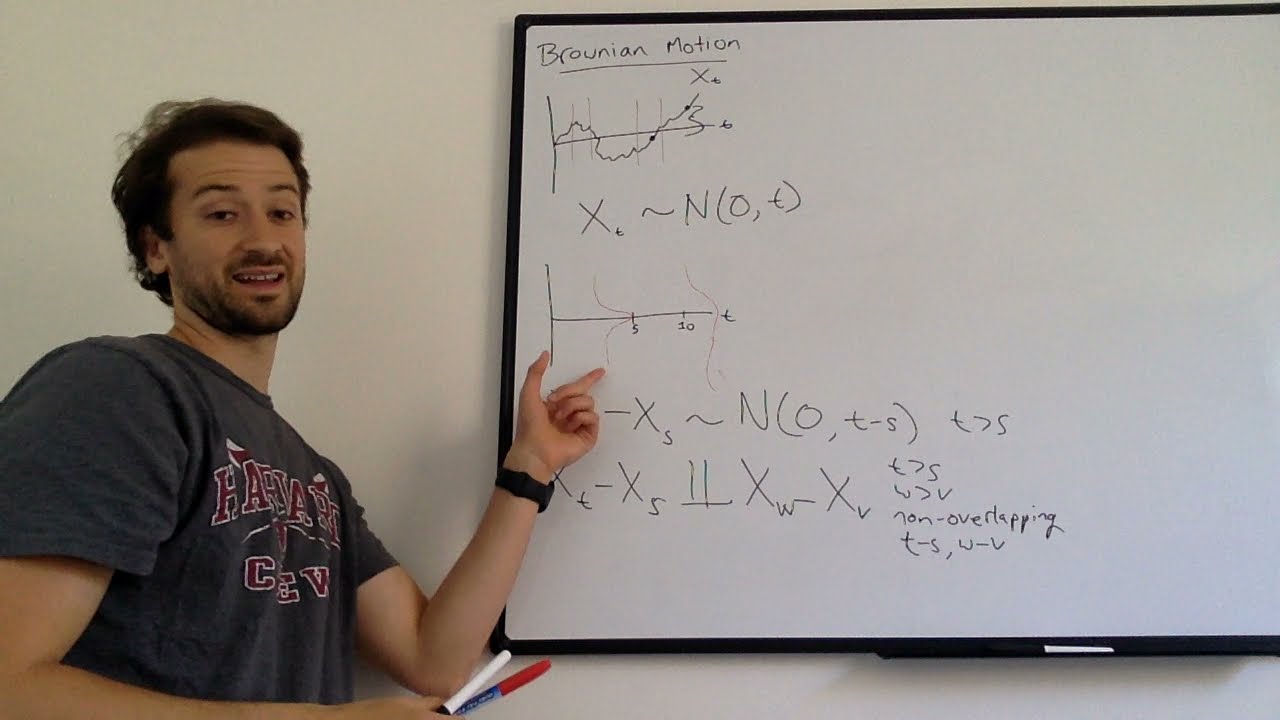 Brownian Motion
Xₜ
t
Xₜ ~ N(0, t)
5 10 t
-Xₛ ~ N(0, t-s) t>s
Xₜ-Xₛ ⫫ X_w-Xᵥ
t>s
w>v
non-overlapping
t-s, w-v
HARVARD
CREW